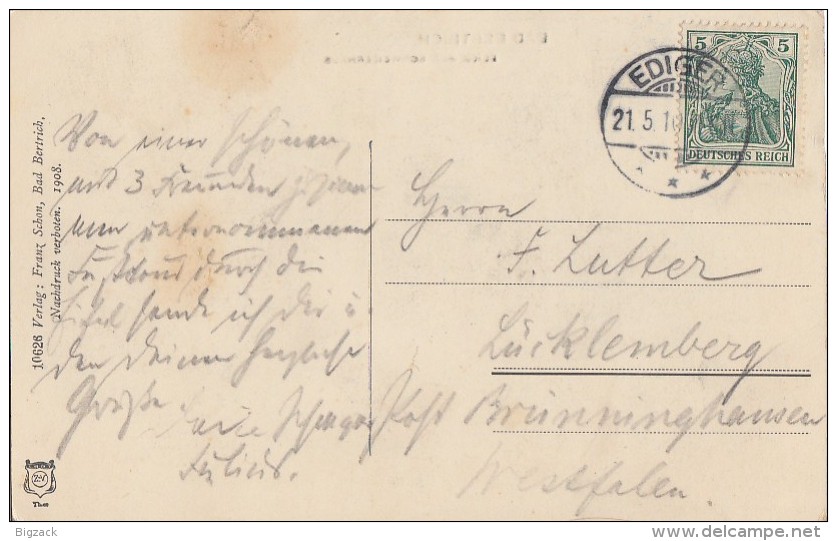 10626 Verlag: Franz Schon, Bad Bertrich,
Nachdruck verboten. 1908.
Von einer schönen,
mit 3 Freunden zusam-
men unternommenen
durch die
Eifel sende ich dir u.
den deinen herzliche
Grüße
Schwager
Julius.
5 5
DEUTSCHES REICH
EDIGER
21.5.10
Herrn
F. Lutter
Lücklemberg
Post Brünninghausen
Westfalen.
Theo
Bigzack
delcampe.net